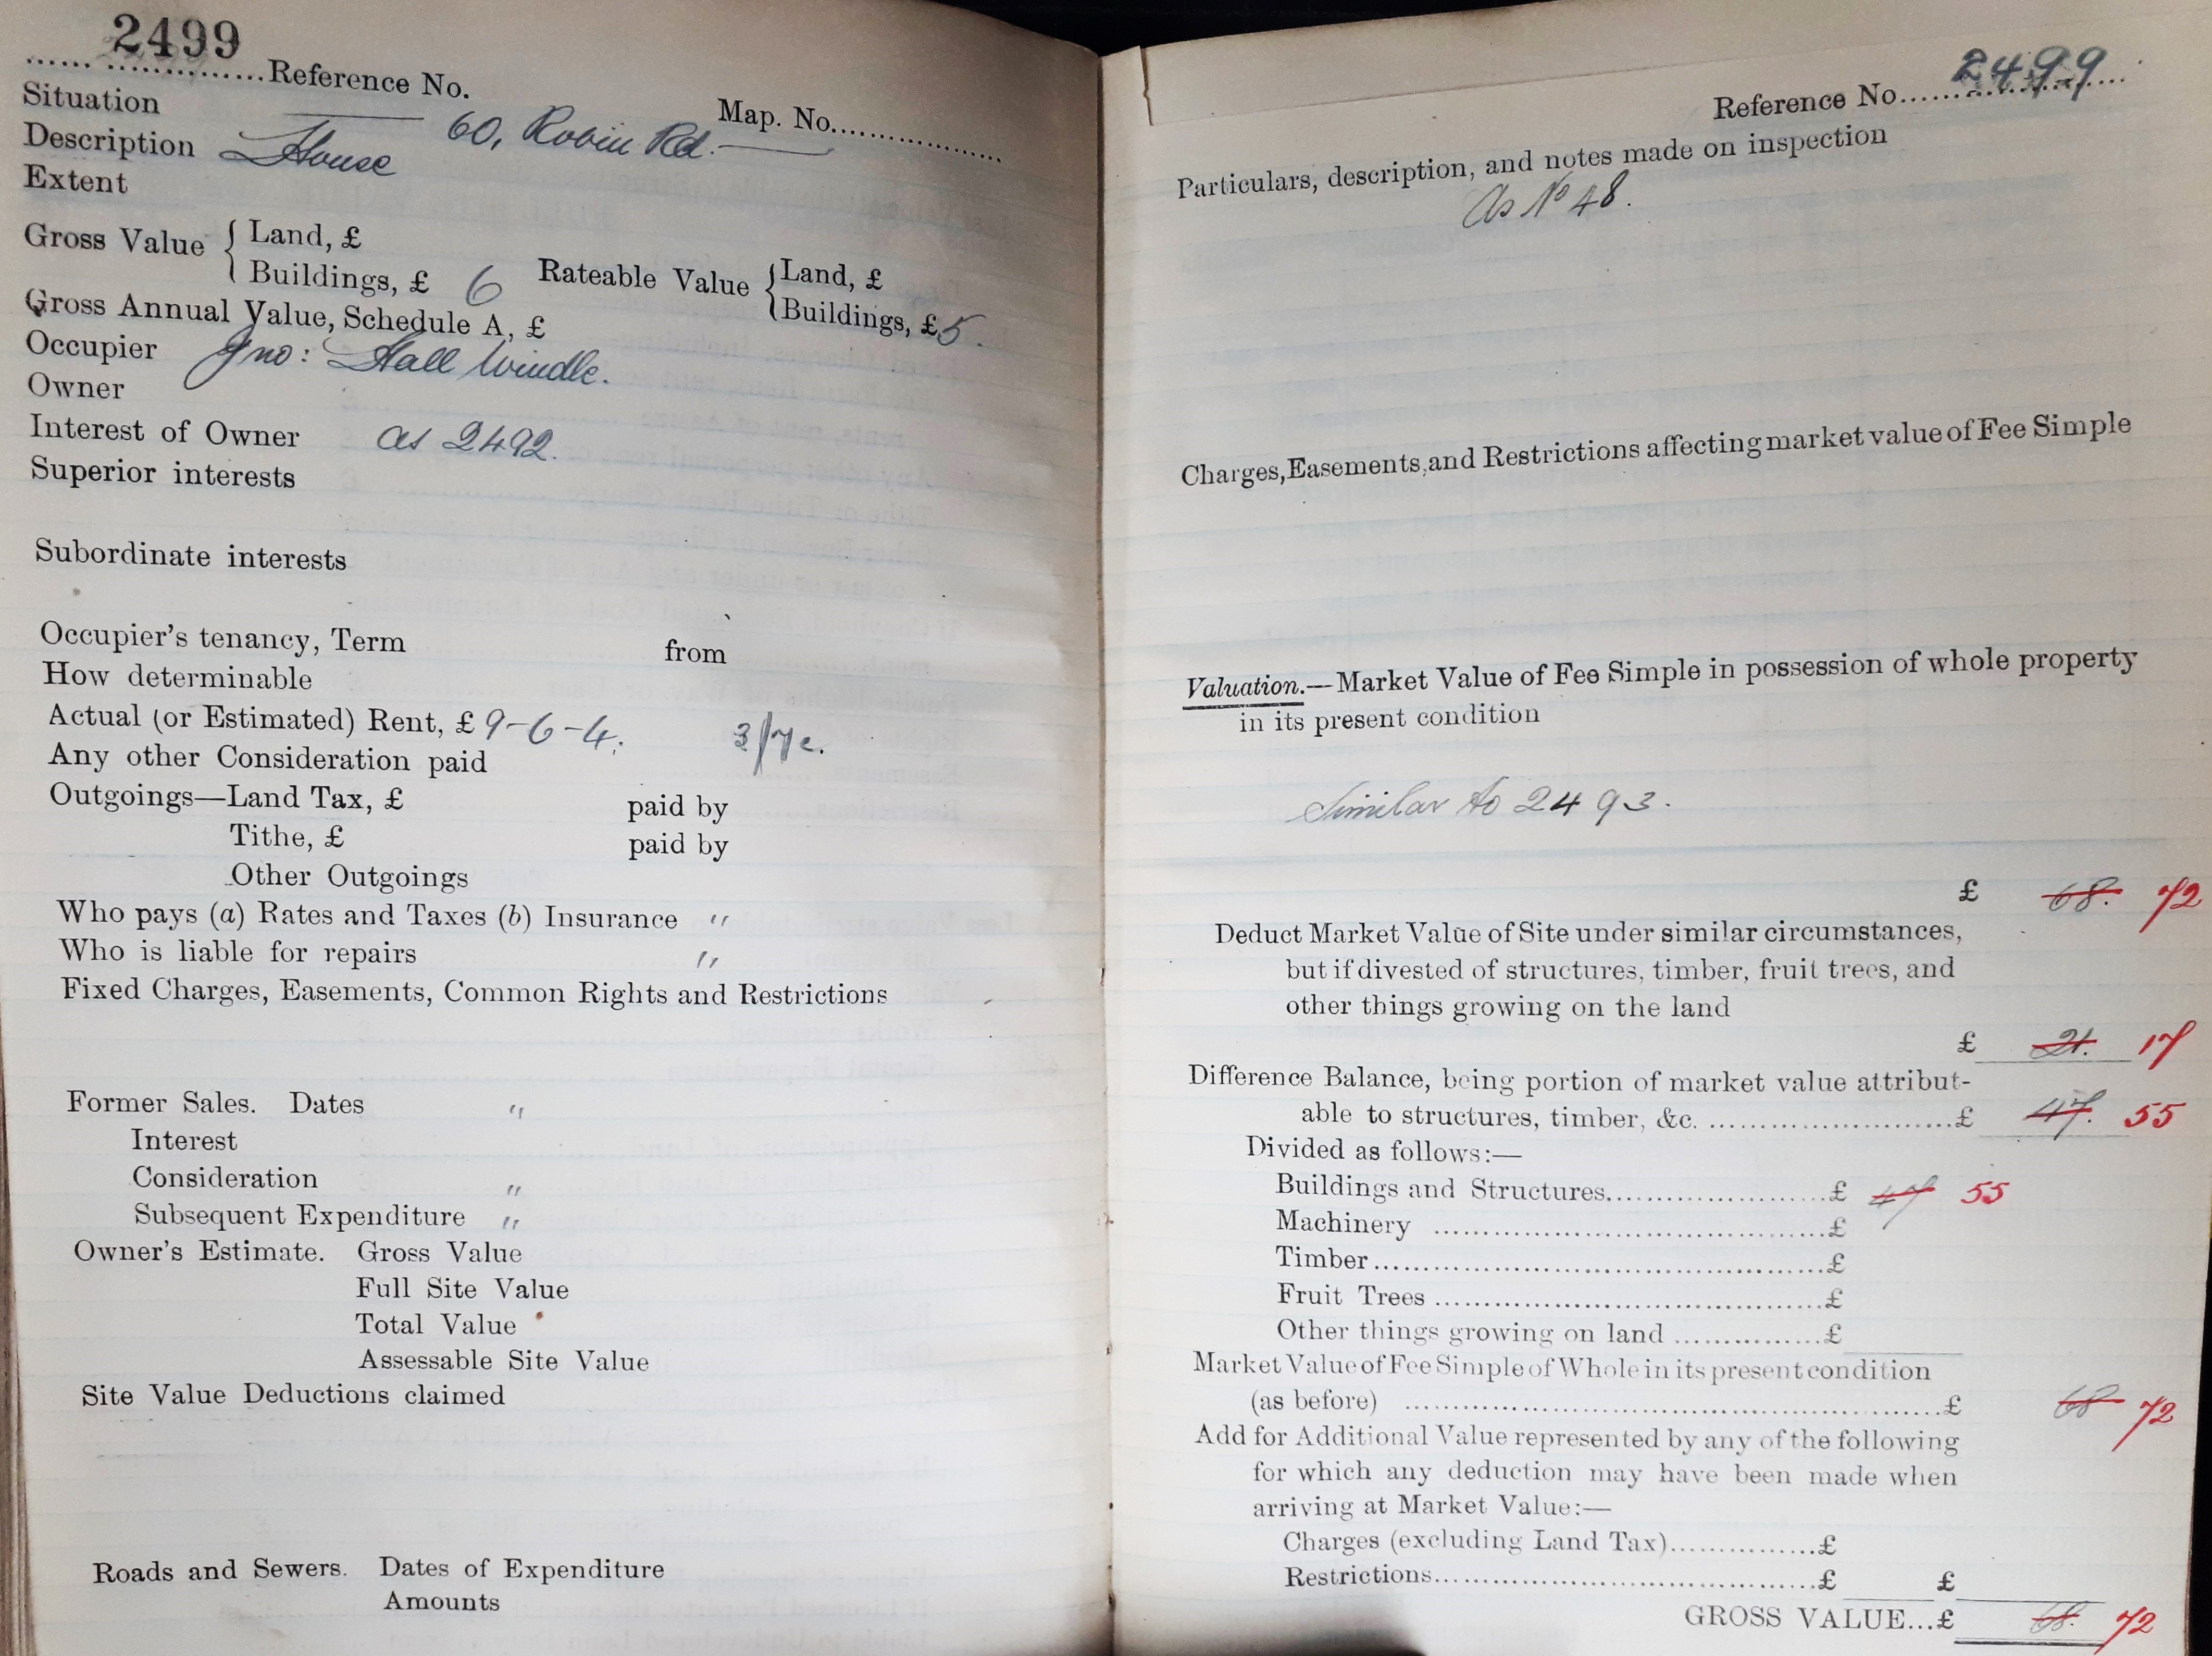 2499
...... ...............Reference No.
Map. No..................
Situation 60, Robin Rd.
Description House
Extent
Gross Value { Land, £
Buildings, £ 6 Rateable Value { Land, £
Buildings, £ 5.
Gross Annual Value, Schedule A, £
Occupier Jno: Hall Windle.
Owner
Interest of Owner as 2492.
Superior interests
Subordinate interests
Occupier's tenancy, Term from
How determinable
Actual (or Estimated) Rent, £ 9-6-4. 3/7 c.
Any other Consideration paid
Outgoings—Land Tax, £ paid by
Tithe, £ paid by
Other Outgoings
Who pays (a) Rates and Taxes (b) Insurance "
Who is liable for repairs "
Fixed Charges, Easements, Common Rights and Restrictions
Former Sales. Dates "
Interest
Consideration "
Subsequent Expenditure "
Owner's Estimate. Gross Value
Full Site Value
Total Value
Assessable Site Value
Site Value Deductions claimed
Roads and Sewers. Dates of Expenditure
Amounts
Reference No. 2499
Particulars, description, and notes made on inspection
As No 48.
Charges, Easements, and Restrictions affecting market value of Fee Simple
Valuation.—Market Value of Fee Simple in possession of whole property
in its present condition
Similar to 2493.
£ 68. 72
Deduct Market Value of Site under similar circumstances,
but if divested of structures, timber, fruit trees, and
other things growing on the land
£ 21. 17
Difference Balance, being portion of market value attribut-
able to structures, timber, &c. ..........................£ 47. 55
Divided as follows:—
Buildings and Structures........................£ 47 55
Machinery ..........................................£
Timber................................................£
Fruit Trees ..........................................£
Other things growing on land ................£
Market Value of Fee Simple of Whole in its present condition
(as before) ............................................................£ 68 72
Add for Additional Value represented by any of the following
for which any deduction may have been made when
arriving at Market Value:—
Charges (excluding Land Tax)................£
Restrictions..........................................£ £
GROSS VALUE...£ 68. 72